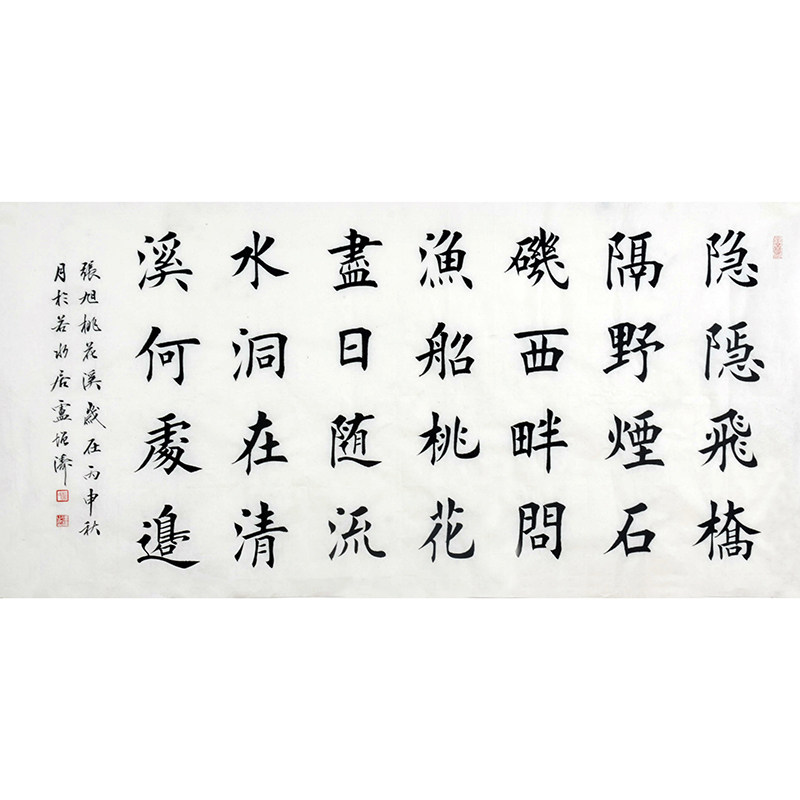 隐隱飛橋
隔野煙石
磯西畔問
漁船桃花
盡日随流
水洞在清
溪何處邊
張旭桃花溪歲在丙申秋
月於若水居